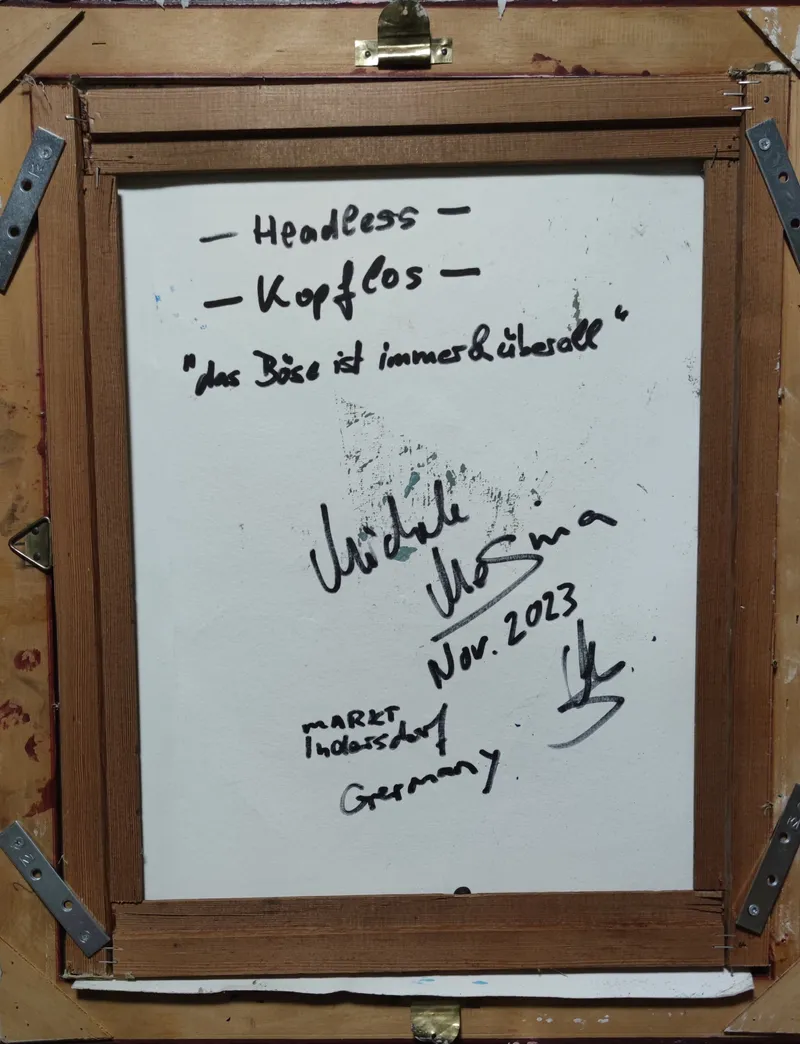 – Headless –
– Kopflos –
"das Böse ist immer & überall"
Nov. 2023
MARKT
Indersdorf
Germany